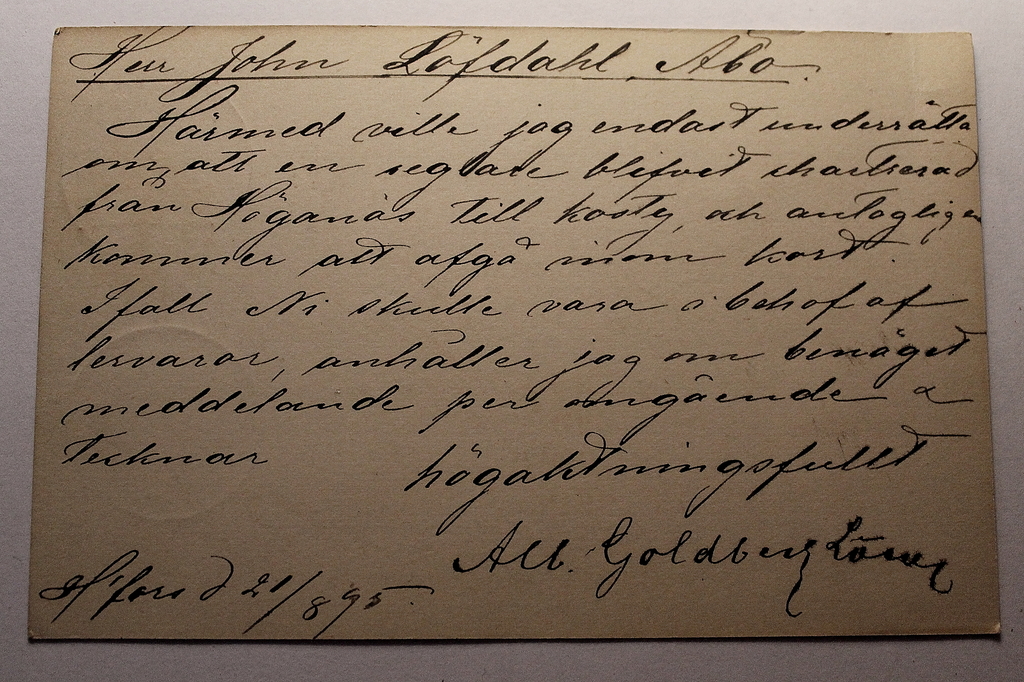 Herr John Löfdahl, Åbo.
Härmed ville jag endast underrätta
om, att en seglare blifvit chartrerad
från Höganäs till kosty, och antagligen
kommer att afgå inom kort.
Ifall Ni skulle vara i behof af
lervaror, anhåller jag om benäget
meddelande per omgående &
tecknar
högaktningsfullt
Alb. Goldberg
H'fors d 21/8 95.